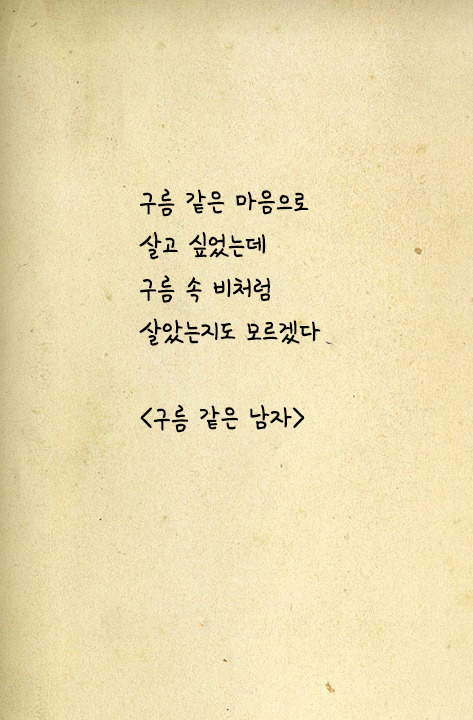 구름 같은 마음으로
살고 싶었는데
구름 속 비처럼
살았는지도 모르겠다
<구름 같은 남자>